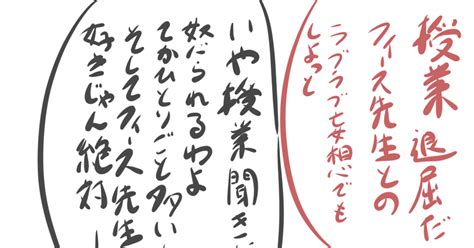 授業退屈だ
フィース先生との
ラブラブ妄想心でも
しよっと
いや授業聞きに
怒られるわよ
てかひとりごと多い
そしてフィース先生
好きじゃん絶対